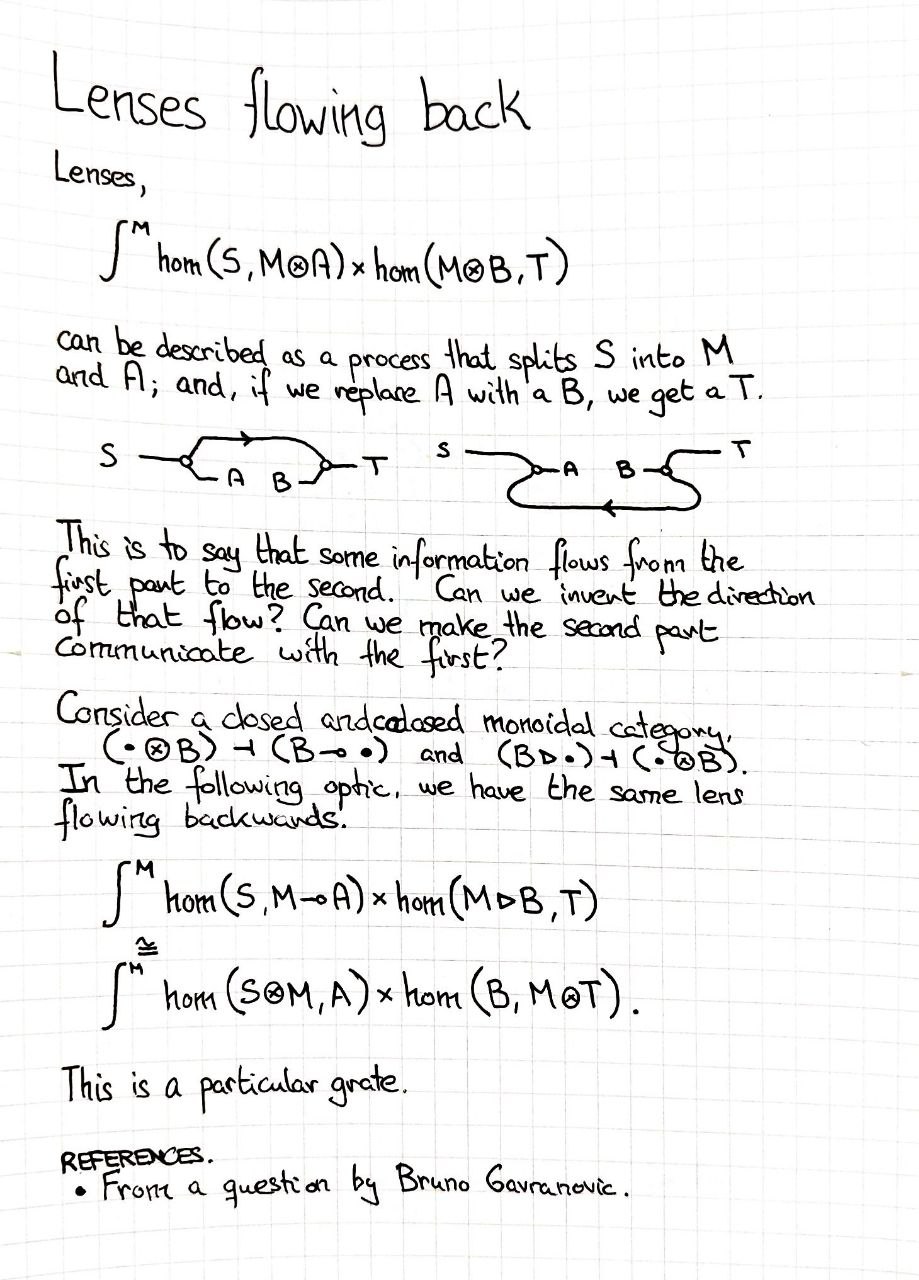 Lenses flowing back
Lenses,
∫^M hom(S, M⊗A) × hom(M⊗B, T)
can be described as a process that splits S into M
and A; and, if we replace A with a B, we get a T.
S A B T S A B T
This is to say that some information flows from the
first part to the second. Can we invent the direction
of that flow? Can we make the second part
communicate with the first?
Consider a closed and coclosed monoidal category,
(·⊗B) ⊣ (B⊸•) and (B▷•) ⊣ (·⊗B).
In the following optic, we have the same lens
flowing backwards.
∫^M hom(S, M⊸A) × hom(M▷B, T)
≅
∫^M hom(S⊗M, A) × hom(B, M⊗T).
This is a particular grate.
REFERENCES.
• From a question by Bruno Gavranovic.